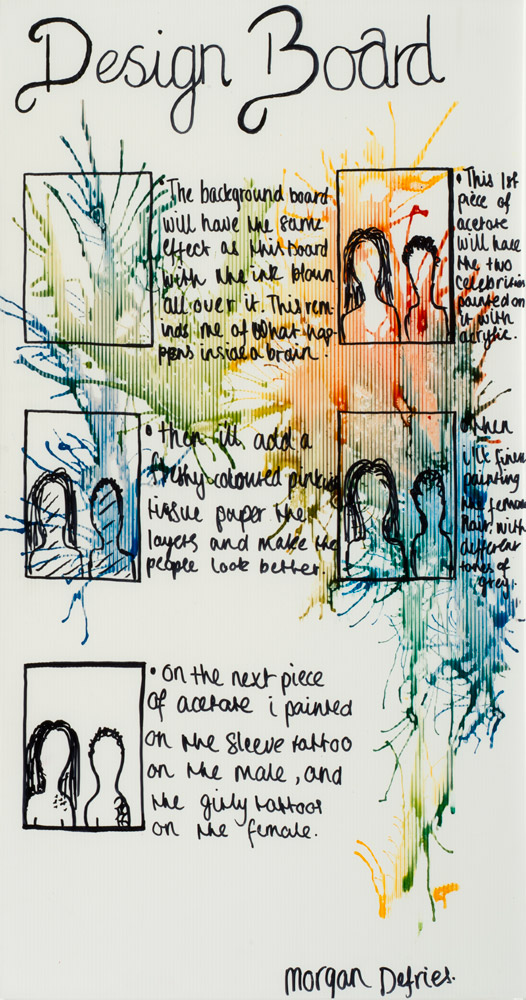 Design Board
• The background board
will have the same
effect as this board
with the ink blown
all over it. This rem-
inds me of what hap-
pens inside a brain.
• This 1st
piece of
acetate
will have
the two
celebrities
painted on
it with
acrylic.
• then ill add a
fleshy coloured pinkish
tissue paper the
layers and make the
people look better
• then
ill finish
painting
the female
hair, with
different
tones of
grey.
• on the next piece
of acetate i painted
on the sleeve tattoo
on the male, and
the girly tattoos
on the female.
Morgan Defries.